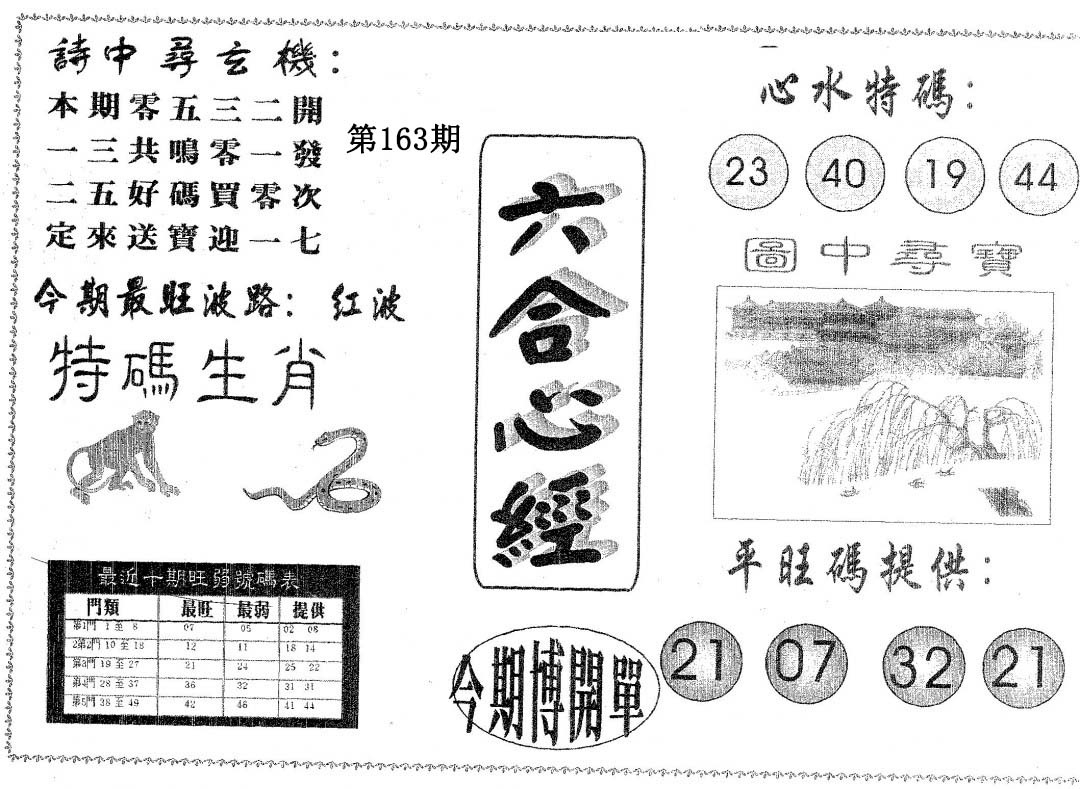 詩中尋玄機：
本期零五三二開
一三共鳴零一發
二五好碼買零次
定來送寶迎一七
今期最旺波路：红波
特碼生肖
最近十期旺弱號碼表
門類 最旺 最弱 提供
第1門 1 至 8 07 05 02 08
2第2門 10 至 18 12 11 18 14
第3門 19 至 27 21 24 25 22
第4門 28 至 37 36 32 31 31
第5門 38 至 49 42 46 41 44
第163期
六合心經
今期博開單
心水特碼：
23 40 19 44
圖中尋寶
平旺碼提供：
21 07 32 21